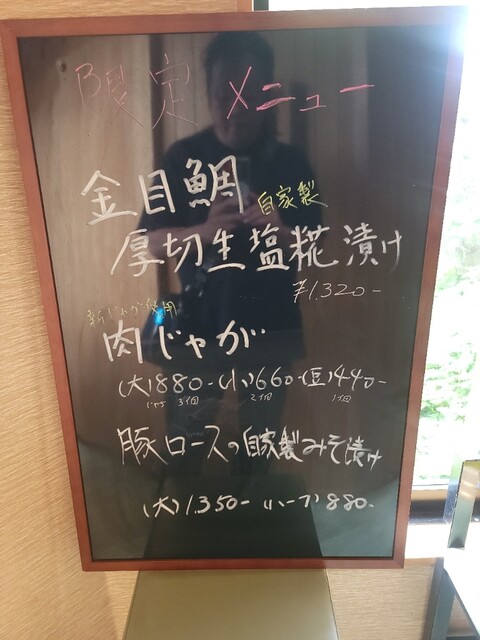 限定 メニュー
金目鯛
自家製
厚切生塩糀漬け
¥1.320-
新じゃが使用
肉じゃが
(大)880- (小)660- (豆)440-
じゃが3個 2個 1個
豚ロースの自家製みそ漬け
(大)1.350- (ハーフ)880.